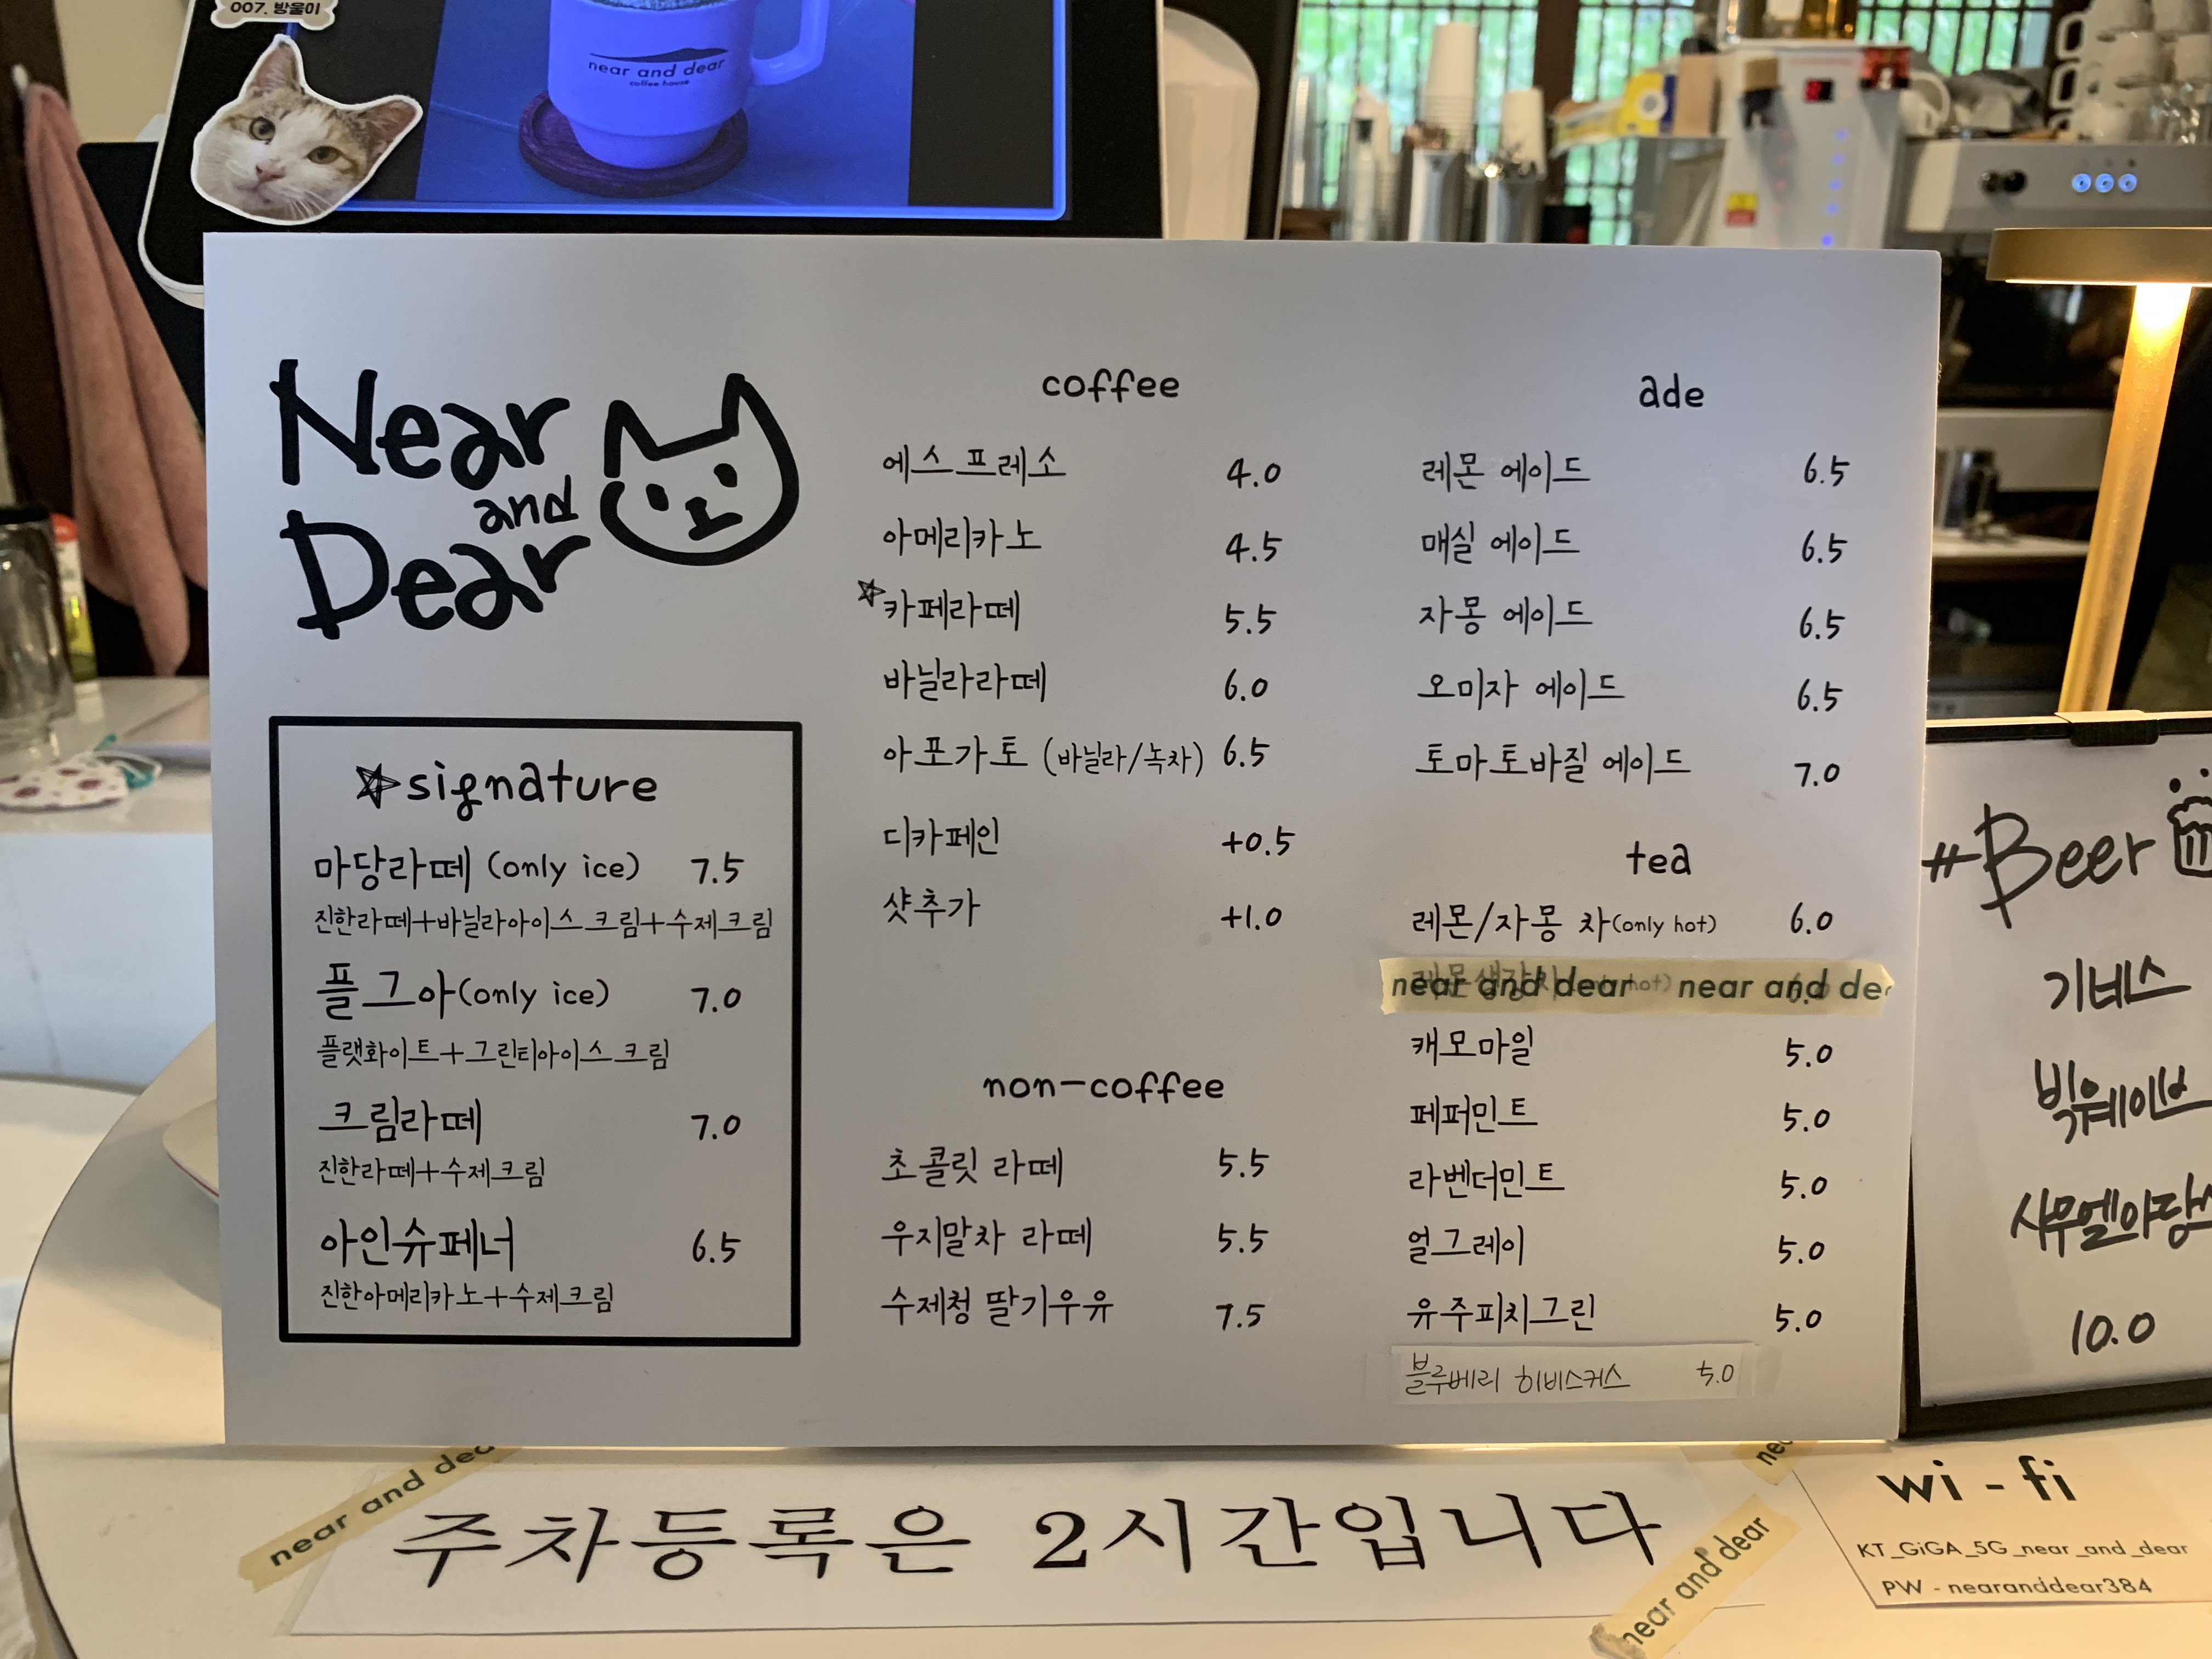 007. 방울이
near and dear
coffee house
Near
and
Dear
☆signature
마당라떼 (only ice) 7.5
진한라떼+바닐라아이스크림+수제크림
플그아(only ice) 7.0
플랫화이트+그린티아이스크림
크림라떼 7.0
진한라떼+수제크림
아인슈페너 6.5
진한아메리카노+수제크림
coffee
에스프레소 4.0
아메리카노 4.5
☆카페라떼 5.5
바닐라라떼 6.0
아포가토 (바닐라/녹차) 6.5
디카페인 +0.5
샷추가 +1.0
non-coffee
초콜릿 라떼 5.5
우지말차 라떼 5.5
수제청 딸기우유 7.5
ade
레몬 에이드 6.5
매실 에이드 6.5
자몽 에이드 6.5
오미자 에이드 6.5
토마토바질 에이드 7.0
tea
레몬/자몽 차(only hot) 6.0
near and dear near and de
캐모마일 5.0
페퍼민트 5.0
라벤더민트 5.0
얼그레이 5.0
유주피치그린 5.0
블루베리 히비스커스 5.0
#Beer
기네스
빅웨이브
사무엘아담스
10.0
near and dea
주차등록은 2시간입니다
near and dear
wi-fi
KT_GiGA_5G_near_and_dear
PW - nearanddear384